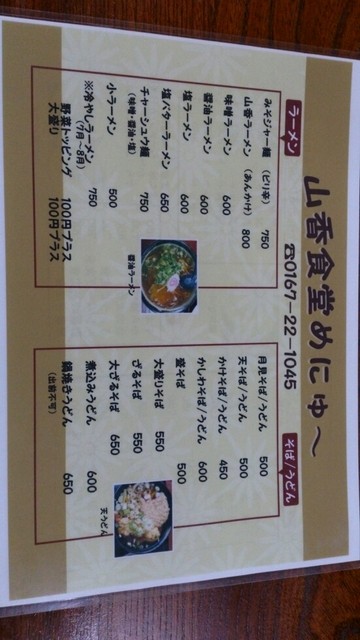 山香食堂めにゅ〜
☎0167-22-1045
ラーメン
みそジャー麺(ピリ辛) 750
山香ラーメン(あんかけ) 800
味噌ラーメン 600
醤油ラーメン 600
塩ラーメン 600
塩バターラーメン 650
チャーシュウ麺 750
(味噌・醤油・塩)
小ラーメン 500
※冷やしラーメン 750
(7月〜8月)
野菜トッピング 100円プラス
大盛り 100円プラス
醤油ラーメン
そば/うどん
月見そば/うどん 500
天そば/うどん 500
かけそば/うどん 450
かしわそば/うどん 600
盛そば 500
大盛りそば 550
ざるそば 550
大ざるそば 650
煮込みうどん 600
鍋焼きうどん 650
(出前不可)
天うどん